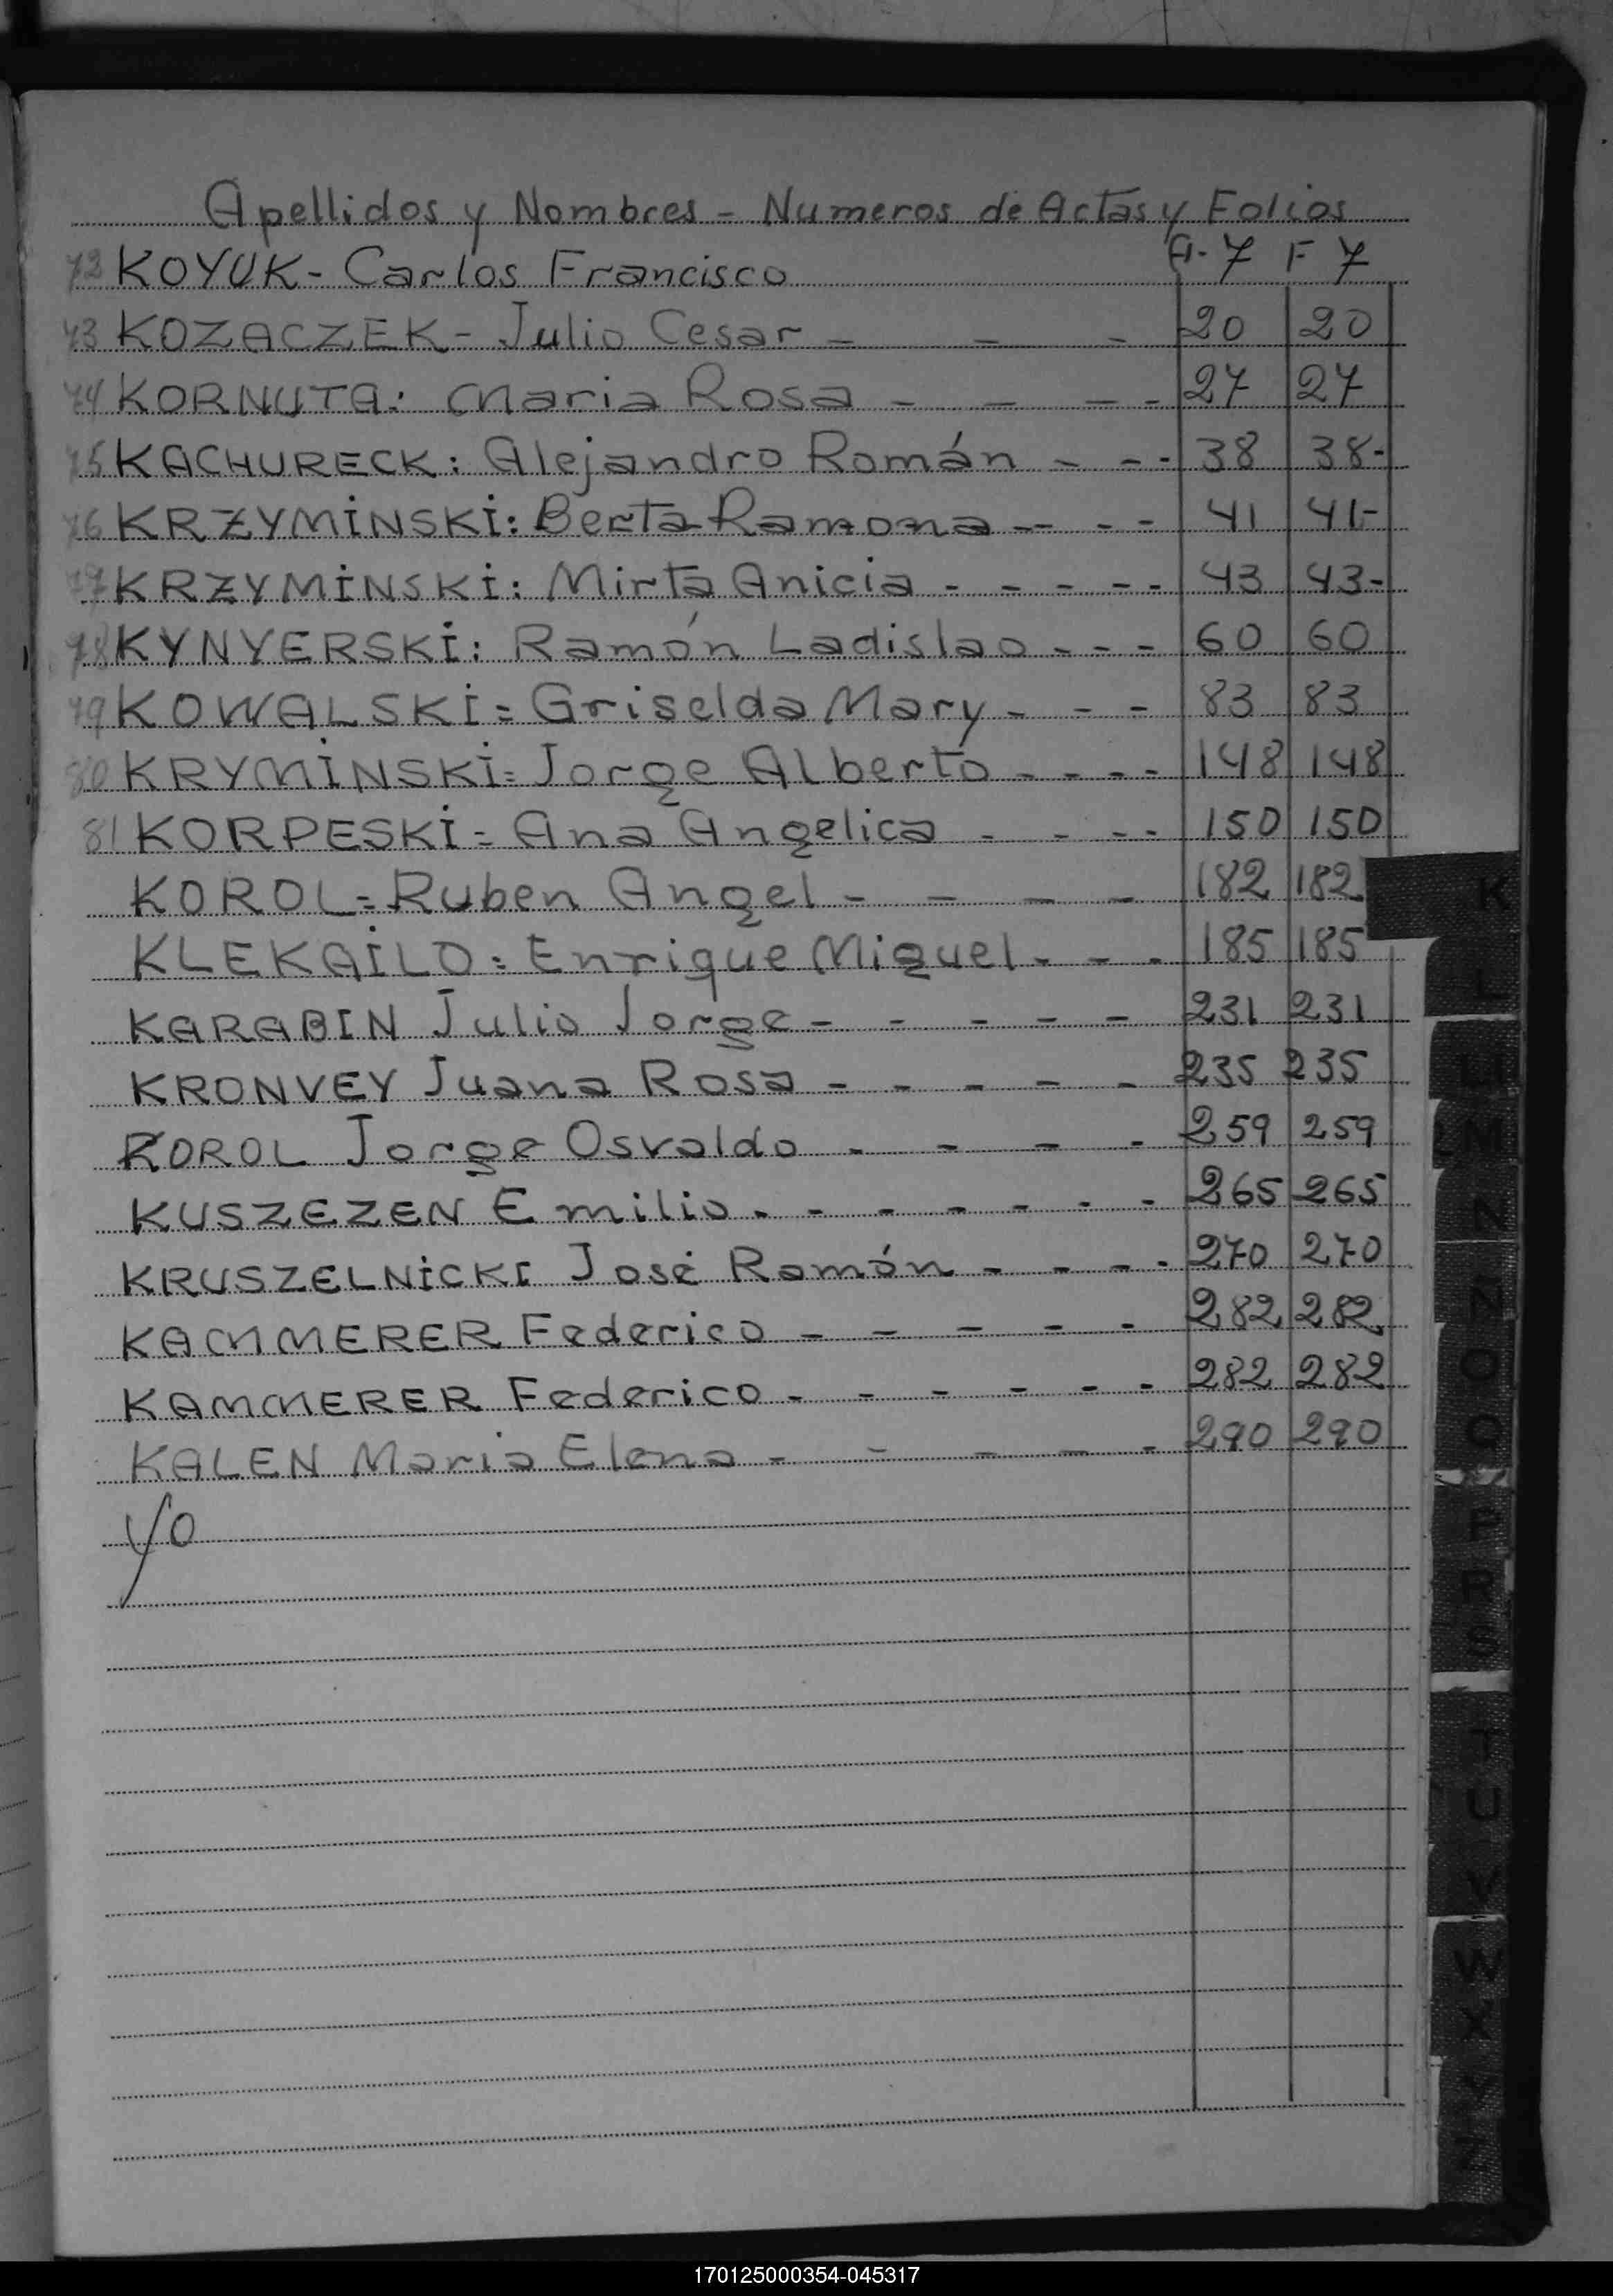 Apellidos y Nombres - Numeros de Actas y Folios
72 KOYUK - Carlos Francisco A-7 F 7
73 KOZACZEK - Julio Cesar - - - 20 20
74 KORNUTA: Maria Rosa - - - - 27 27
75 KACHURECK: Alejandro Román - - - 38 38-
76 KRZYMINSKI: Berta Ramona - - - 41 41-
77 KRZYMINSKI: Mirta Anicia - - - - - 43 43-
78 KYNYERSKI: Ramón Ladislao - - - 60 60
79 KOWALSKI= Griselda Mary - - - 83 83
80 KRYMINSKI= Jorge Alberto - - - - 148 148
81 KORPESKI= Ana Angelica - - - - 150 150
KOROL= Ruben Angel - - - - 182 182
KLEKAILO= Enrique Miguel - - - 185 185
KARABIN Julio Jorge - - - - - 231 231
KRONVEY Juana Rosa - - - - - 235 235
KOROL Jorge Osvaldo - - - - 259 259
KUSZEZEN Emilio - - - - - - - 265 265
KRUSZELNICKI José Ramón - - - - 270 270
KAMMERER Federico - - - - - 282 282
KAMMERER Federico - - - - - - 282 282
KALEN Maria Elena - - - - - 290 290
K
L
M
N
O
Q
P
R
S
T
U
V
W
X
Y
Z
170125000354-045317